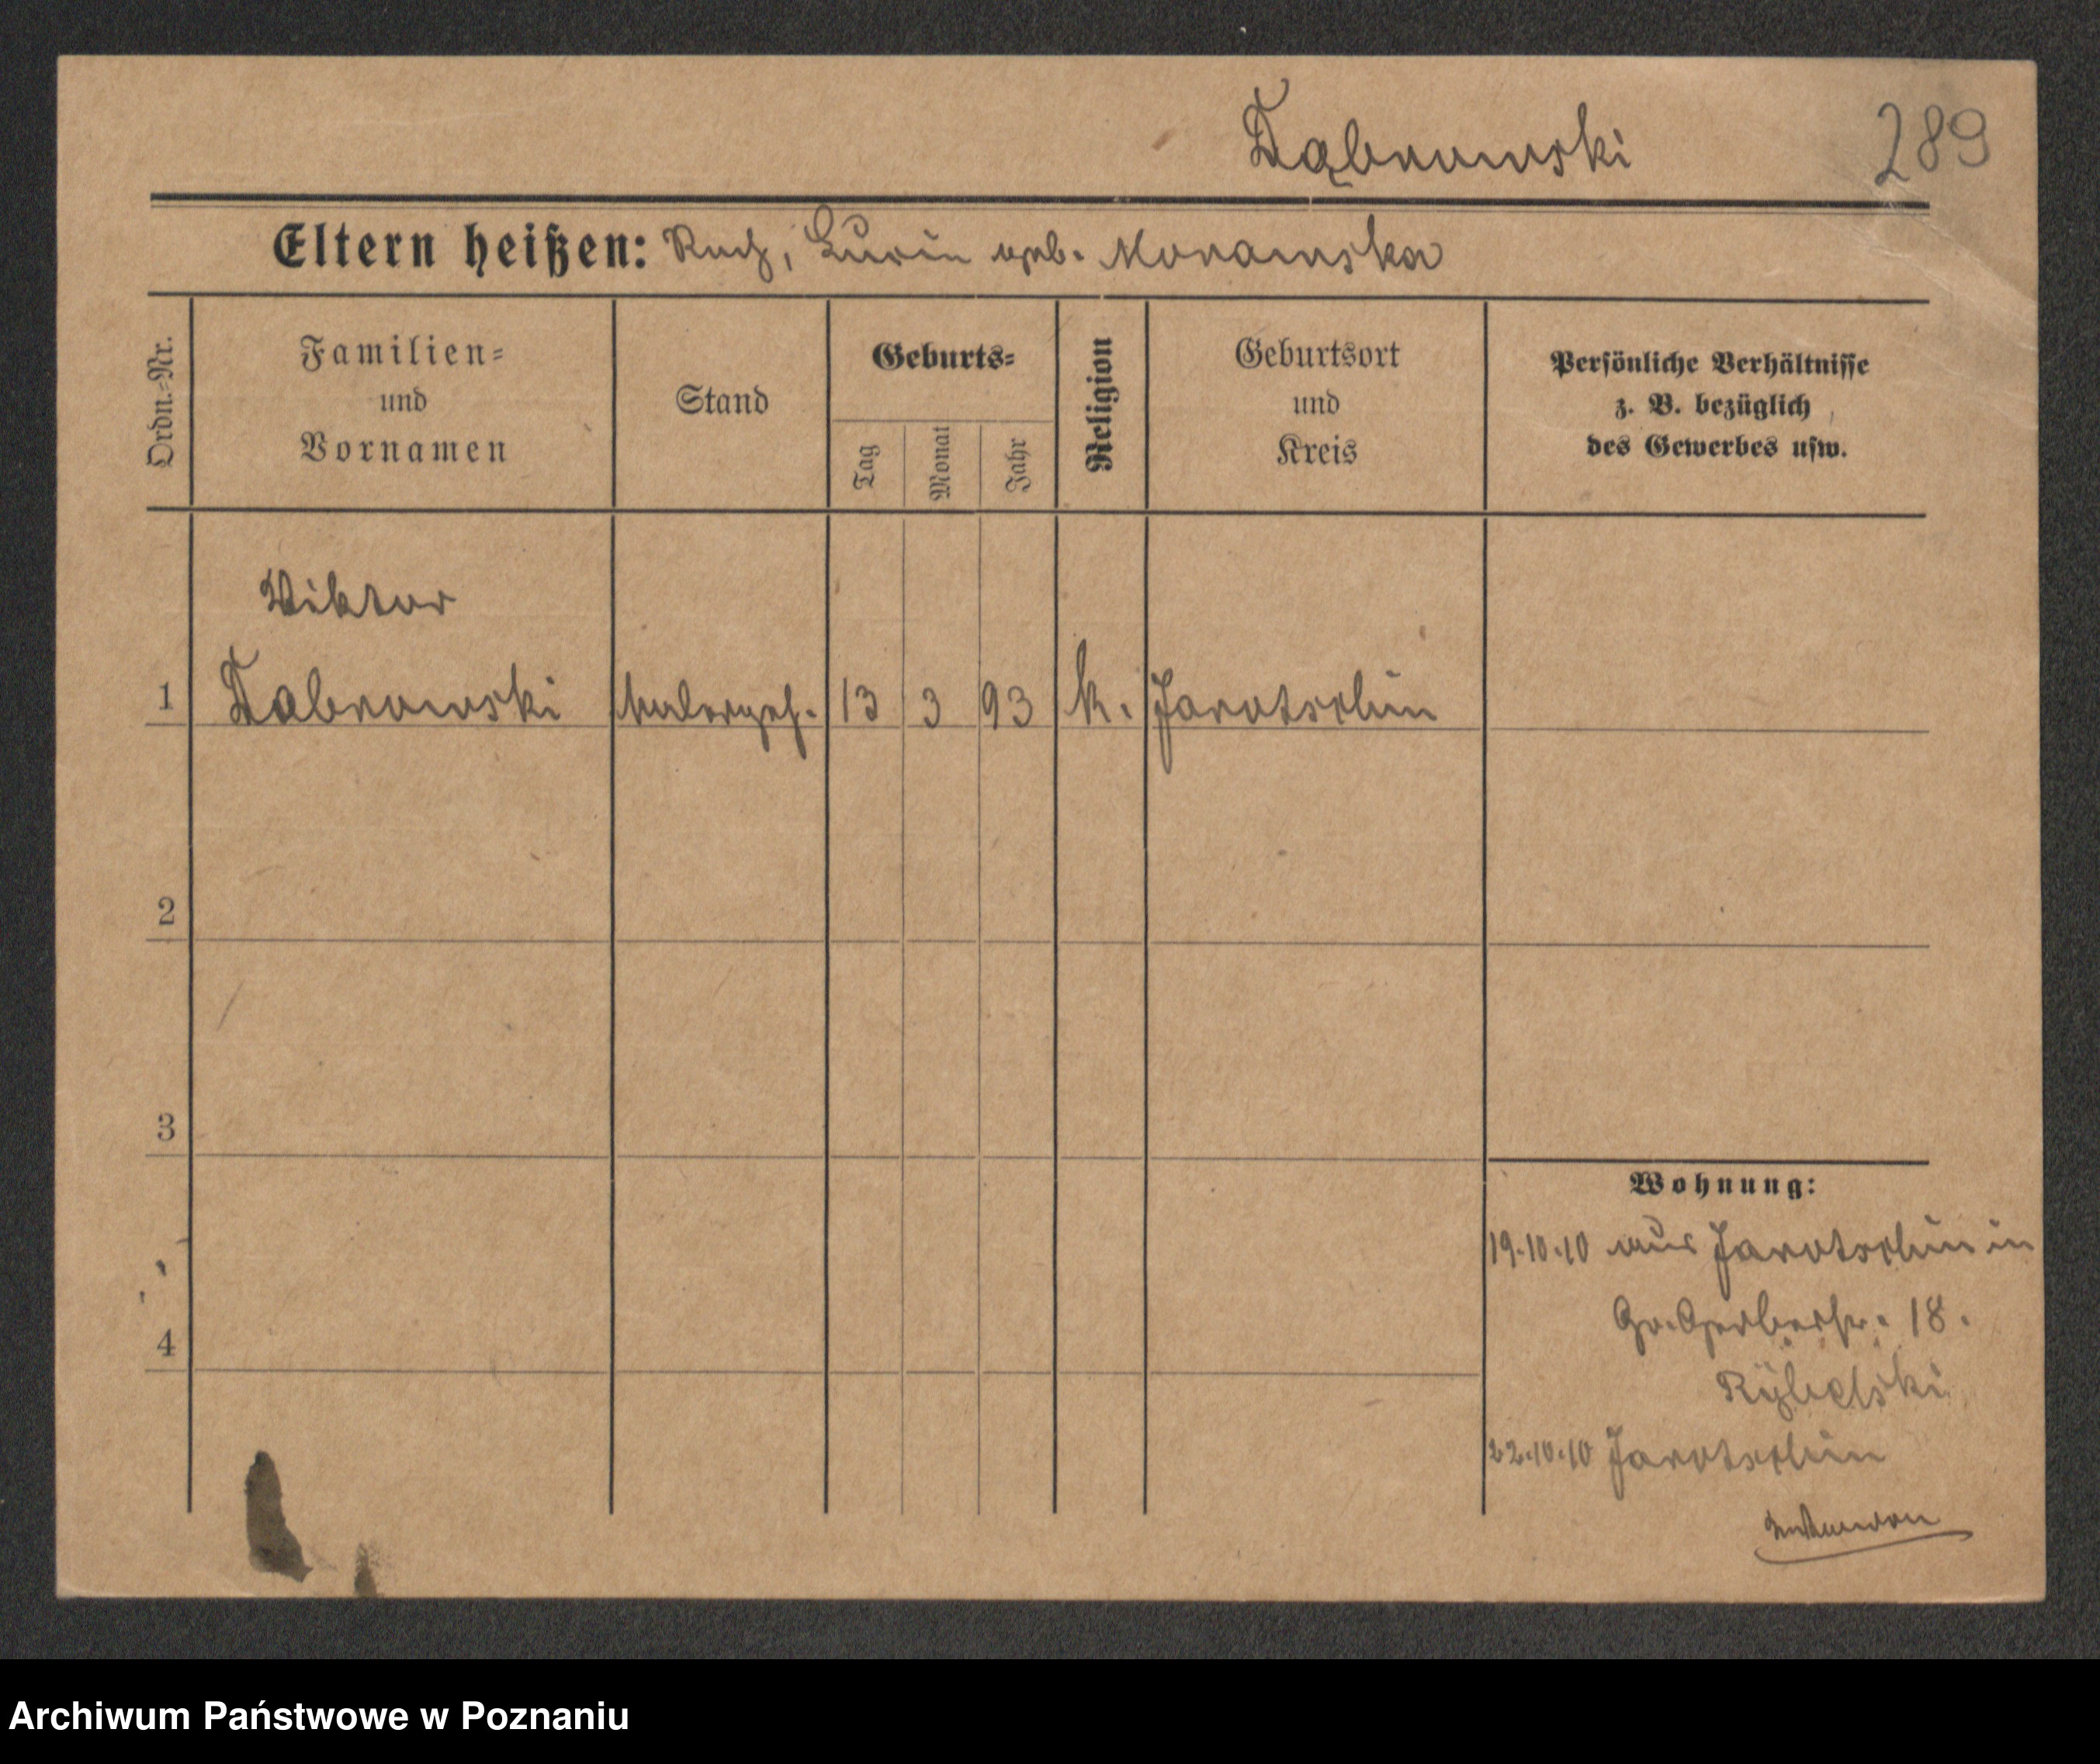 Dąbrowski 289
Eltern heißen: Luzia geb. Morawska
Ordn.-Nr.
Familien-
und
Vornamen
Stand
Geburts-
Tag
Monat
Jahr
Religion
Geburtsort
und
Kreis
Persönliche Verhältnisse
z. B. bezüglich
des Gewerbes usw.
Viktor
1 Dabrowski Malergeh. 13 3 93 k. Jarotschin
2
3
Wohnung:
19.10.10 aus Jarotschin in
Gr. Gerberstr. 18.
4
22.10.10 Jarotschin
Archiwum Państwowe w Poznaniu